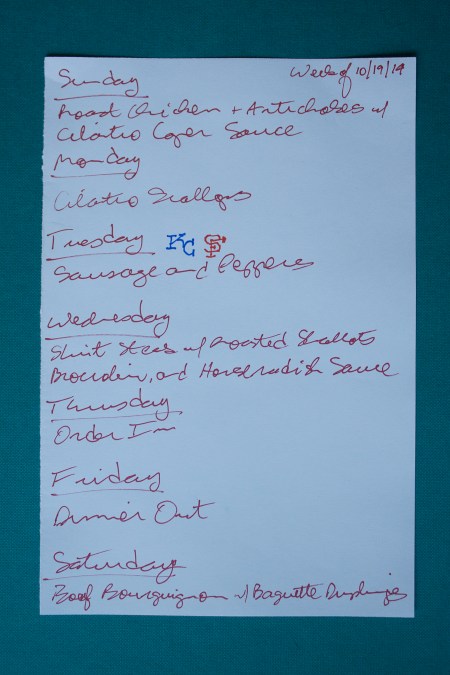 Week of 10/19/14
Sunday
Roast Chicken + Artichokes w/
Cilantro Caper Sauce
Monday
Cilantro Scallops
Tuesday KC SF
Sausage and Peppers
Wednesday
Skirt Steak w/ Roasted Shallots
Broccolini, and Horseradish Sauce
Thursday
Order In
Friday
Dinner Out
Saturday
Boeuf Bourguignon w/ Baguette Dumplings